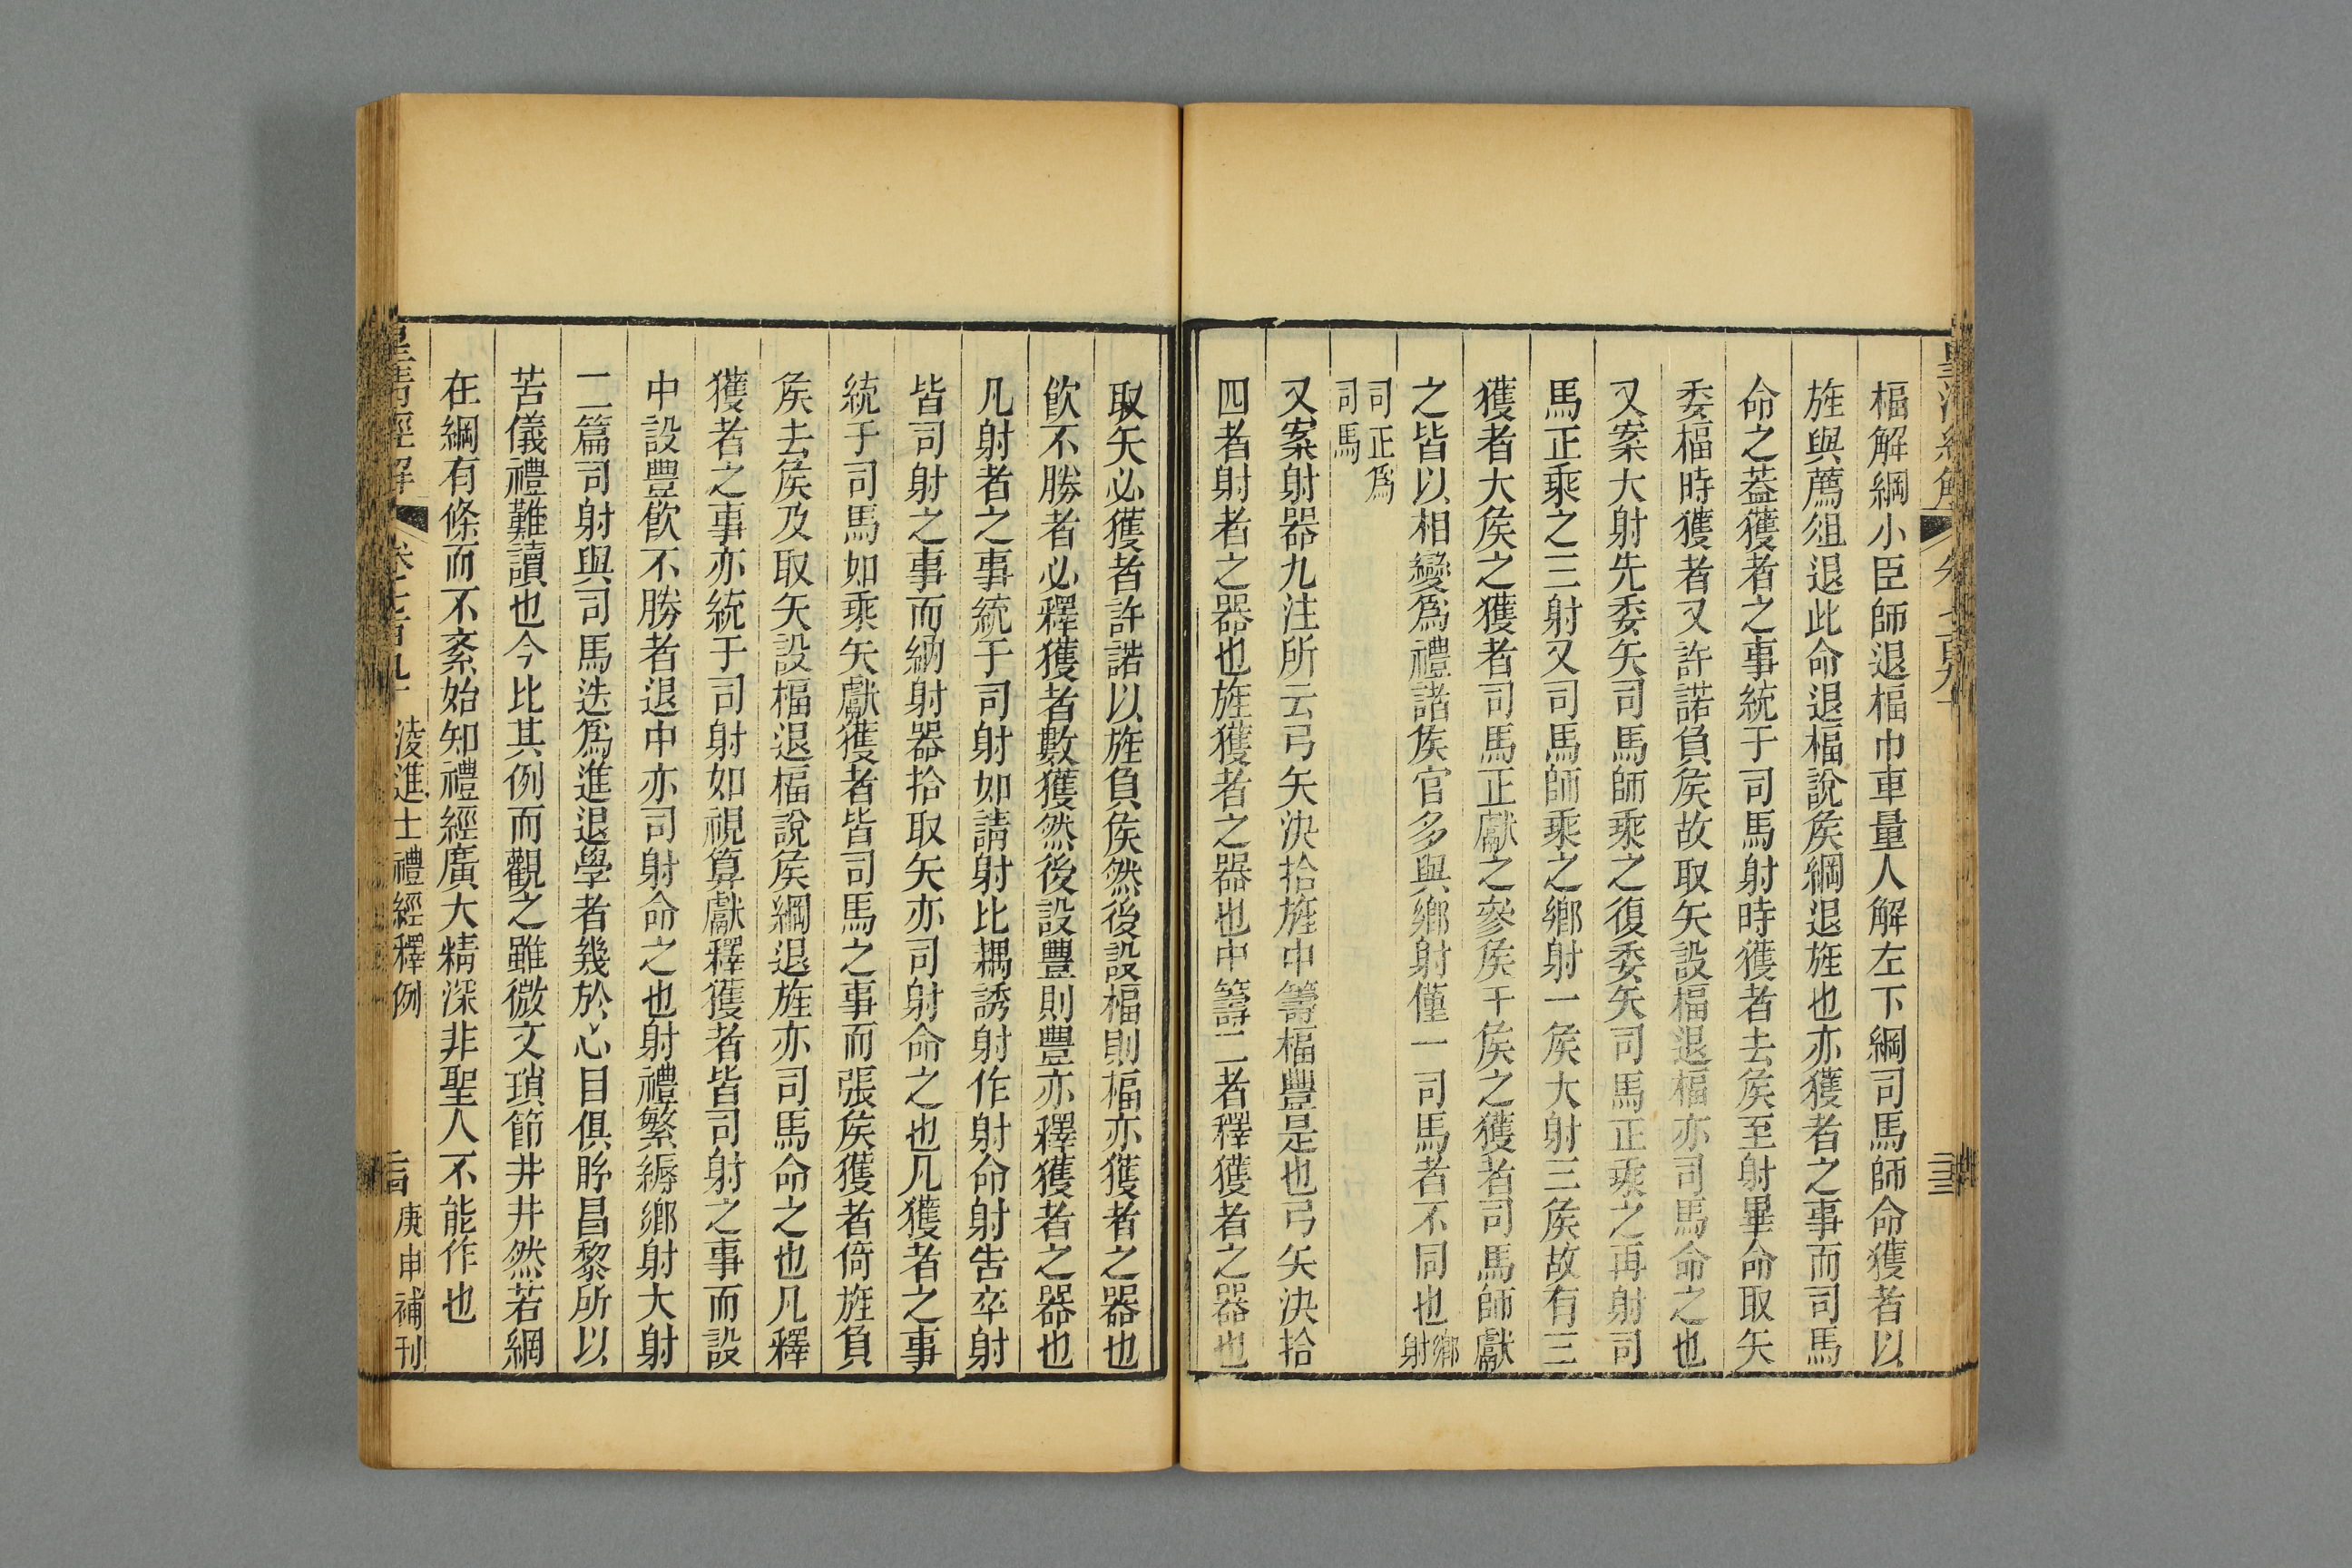 楅解綱小臣師退楅巾車量人解左下綱司馬師命獲者以
旌與薦俎退此命退楅說矦綱退旌也亦獲者之事而司馬
命之蓋獲者之事統于司馬射時獲者去矦至射畢命取矢
委楅時獲者又許諾負矦故取矢設楅退楅亦司馬命之也
又案大射先委矢司馬師乘之復委矢司馬正乘之再射司
馬正乘之三射又司馬師乘之鄉射一矦大射三矦故有三
獲者大矦之獲者司馬正獻之參矦干矦之獲者司馬師獻
之皆以相變爲禮諸矦官多與鄉射僅一司馬者不同也鄉射
司正爲
司馬
又案射器九注所云弓矢決拾旌中籌楅豐是也弓矢決拾
四者射者之器也旌獲者之器也中籌二者釋獲者之器也
取矢必獲者許諾以旌負矦然後設楅則楅亦獲者之器也
飮不勝者必釋獲者數獲然後設豐則豐亦釋獲者之器也
凡射者之事統于司射如請射比耦誘射作射命射告卒射
皆司射之事而納射器拾取矢亦司射命之也凡獲者之事
統于司馬如乘矢獻獲者皆司馬之事而張矦獲者倚旌負
矦去矦及取矢設楅退楅說矦綱退旌亦司馬命之也凡釋
獲者之事亦統于司射如視算獻釋獲者皆司射之事而設
中設豐飮不勝者退中亦司射命之也射禮繁縟鄉射大射
二篇司射與司馬迭爲進退學者幾於心目俱眵昌黎所以
苦儀禮難讀也今比其例而觀之雖微文瑣節井井然若綱
在綱有條而不紊始知禮經廣大精深非聖人不能作也
皇淸經解
凌進士禮經釋例
庚申補刊